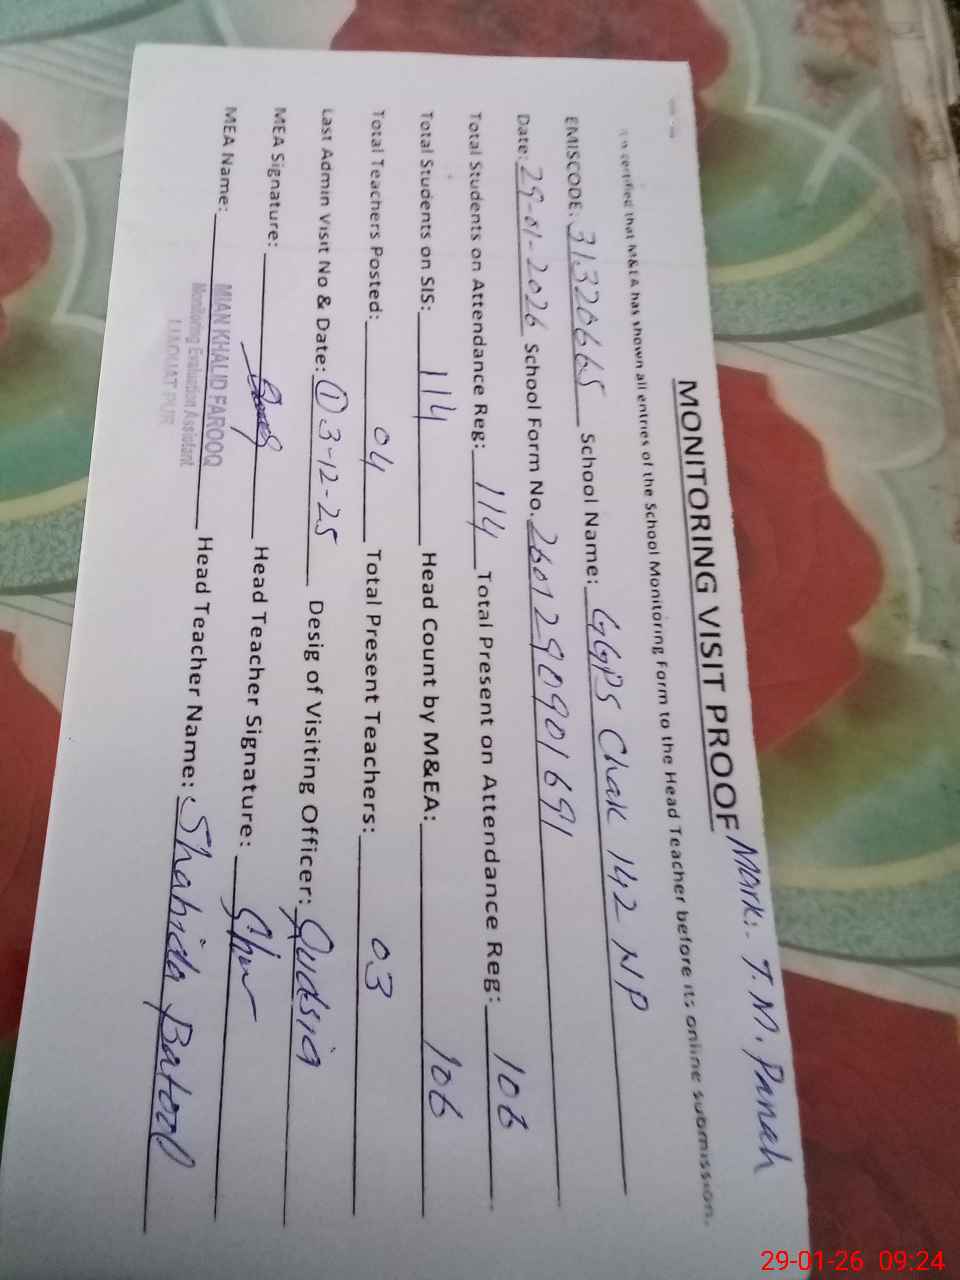 MONITORING VISIT PROOF Mark:- T. M. Panah
It is certified that M&EA has shown all entries of the School Monitoring Form to the Head Teacher before its online submission.
EMISCODE: 31320665 School Name: GGPS Chak 142 NP
Date: 29-01-2026 School Form No. 260129090901691
Total Students on Attendance Reg: 114 Total Present on Attendance Reg: 106
Total Students on SIS: 114 Head Count by M&EA: 106
Total Teachers Posted: 04 Total Present Teachers: 03
Last Admin Visit No & Date: ① 03-12-25 Desig of Visiting Officer: Qudsia
MEA Signature: Head Teacher Signature:
MEA Name: MIAN KHALID FAROOQ Head Teacher Name: Shahida Batool
Monitoring Evaluation Assistant
LIAQUAT PUR
29-01-26 09:24